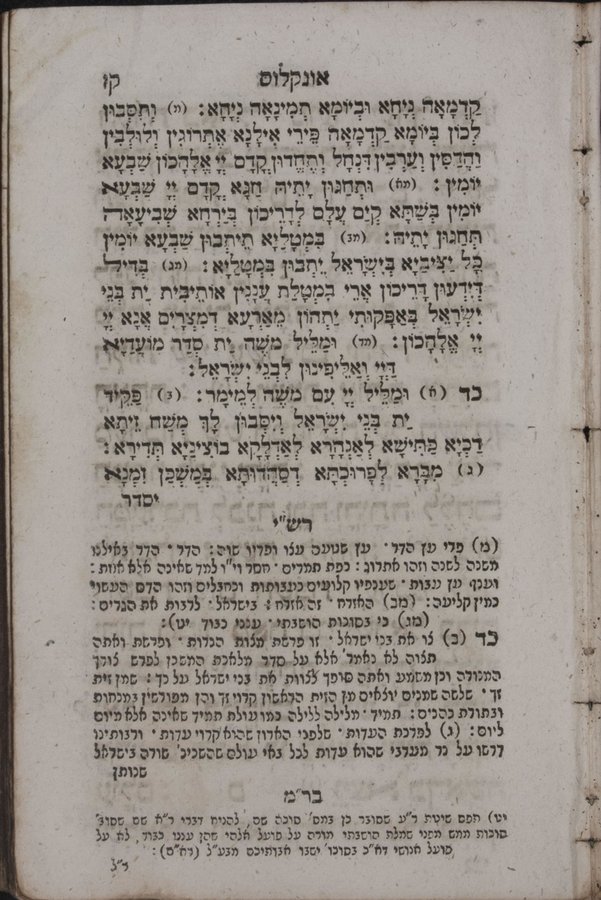 אונקלוס
קז
קַדְמָאָה נְיָחָא וּבְיוֹמָא תְּמִינָאָה נְיָחָא : (מ) וְתִסְּבוּן
לְכוֹן בְּיוֹמָא קַדְמָאָה פֵּירֵי אִילָנָא אֶתְרוֹגִין וְלוּלַבִּין
וַהֲדַסִּין וְעַרְבִין דִּנְחַל וְתֶחֱדוּן קֳדָם יְיָ אֱלָהֲכוֹן שַׁבְעָא
יוֹמִין : (מא) וּתְחַגּוּן יָתֵיהּ חַגָּא קֳדָם יְיָ שַׁבְעָא
יוֹמִין בְּשַׁתָּא קְיָם עֲלָם לְדָרֵיכוֹן בְּיַרְחָא שְׁבִיעָאָה
תְּחַגּוּן יָתֵיהּ : (מב) בִּמְטַלַּיָּא תֵּיתְבוּן שַׁבְעָא יוֹמִין
כָּל יַצִּיבַיָּא בְּיִשְׂרָאֵל יֵתְבוּן בִּמְטַלַּיָּא : (מג) בְּדִיל
דְּיֵדְעוּן דָּרֵיכוֹן אֲרֵי בִמְטַלַּת עֲנָנִין אוֹתֵיבִית יַת בְּנֵי
יִשְׂרָאֵל בְּאַפָּקוּתִי יָתְהוֹן מֵאַרְעָא דְמִצְרָיִם אֲנָא יְיָ
יְיָ אֱלָהֲכוֹן : (מד) וּמַלֵּיל מֹשֶׁה יַת סְדַר מוֹעֲדַיָּא
דַּיְיָ וְאַלֵּיפִינוּן לִבְנֵי יִשְׂרָאֵל :
כד (א) וּמַלֵּיל יְיָ עִם מֹשֶׁה לְמֵימָר : (ב) פַּקֵּיד
יַת בְּנֵי יִשְׂרָאֵל וְיִסְּבוּן לָךְ מְשַׁח זֵיתָא
דַכְיָא כַּתִּישָׁא לְאַנְהָרָא לְאַדְלָקָא בוֹצִינַיָּא תְּדִירָא :
(ג) מִבָּרָא לְפָרוּכְתָּא דְסַהֲדוּתָא בְּמַשְׁכַּן זִמְנָא
יסדר
רש"י
(מ) פרי עץ הדר · עץ שטעם עצו ופריו שוה : הדר · הדר באילנו
משנה לשנה וזהו אתרוג : כפת תמרים · חסר וי"ו למד שאינה אלא אחת :
וענף עץ עבות · שענפיו קלועים כעבותות וכחבלים וזהו הדס העשוי
כמין קליעה : (מב) האזרח · זה אזרח : בישראל · לרבות את הגרים :
(מג) כי בסוכות הושבתי · ענני כבוד יט) :
כד (ב) צו את בני ישראל · זו פרשת מצות הנרות · ופרשת ואתה
תצוה לא נאמר' אלא על סדר מלאכת המשכן לפרש צורך
המנורה וכן משמע ואתה סופך לצוות את בני ישראל על כך : שמן זית
זך · שלשה שמנים יוצאים מן הזית הראשון קרוי זך והן מפורשין במנחות
ובתורת כהנים : תמיד · מלילה ללילה כמו עולת תמיד שאינה אלא מיום
ליום : (ג) לפרכת העדות · שלפני הארון שהוא קרוי עדות · ורבותינו
דרשו על נר מערבי שהוא עדות לכל באי עולם שהשכינ' שורה בישראל
שנותן
בר"מ
יט) תפס שיטת ר"ע שסובר כן במס' סוכה שם, להניח דברי ר"א שם שסוב'
סוכות ממש מפני שמלת הושבתי מורה על פועל אלהי שהן ענני כבוד, לא על
פועל אנושי דא"כ בסוכו' ישבו אבותיכם מבע"ל (רא"ם) :
ר"ל